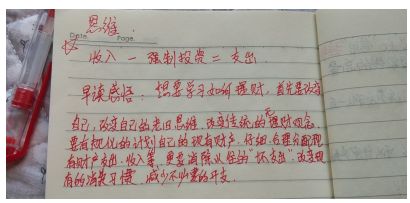 思维.
Date. Page.
☆ 收入 - 强制投资 = 支出
早读感悟: 想要学习如何理财, 首先要改变
自己, 改变自己的老旧思维. 改变传统的理财观念.
要有规化的计划自己的现有财产. 仔细, 合理分配现
有财产支出. 收入等, 更要消除以往的"坏支出". 改变现
有的消费习惯, 减少不必要的开支.